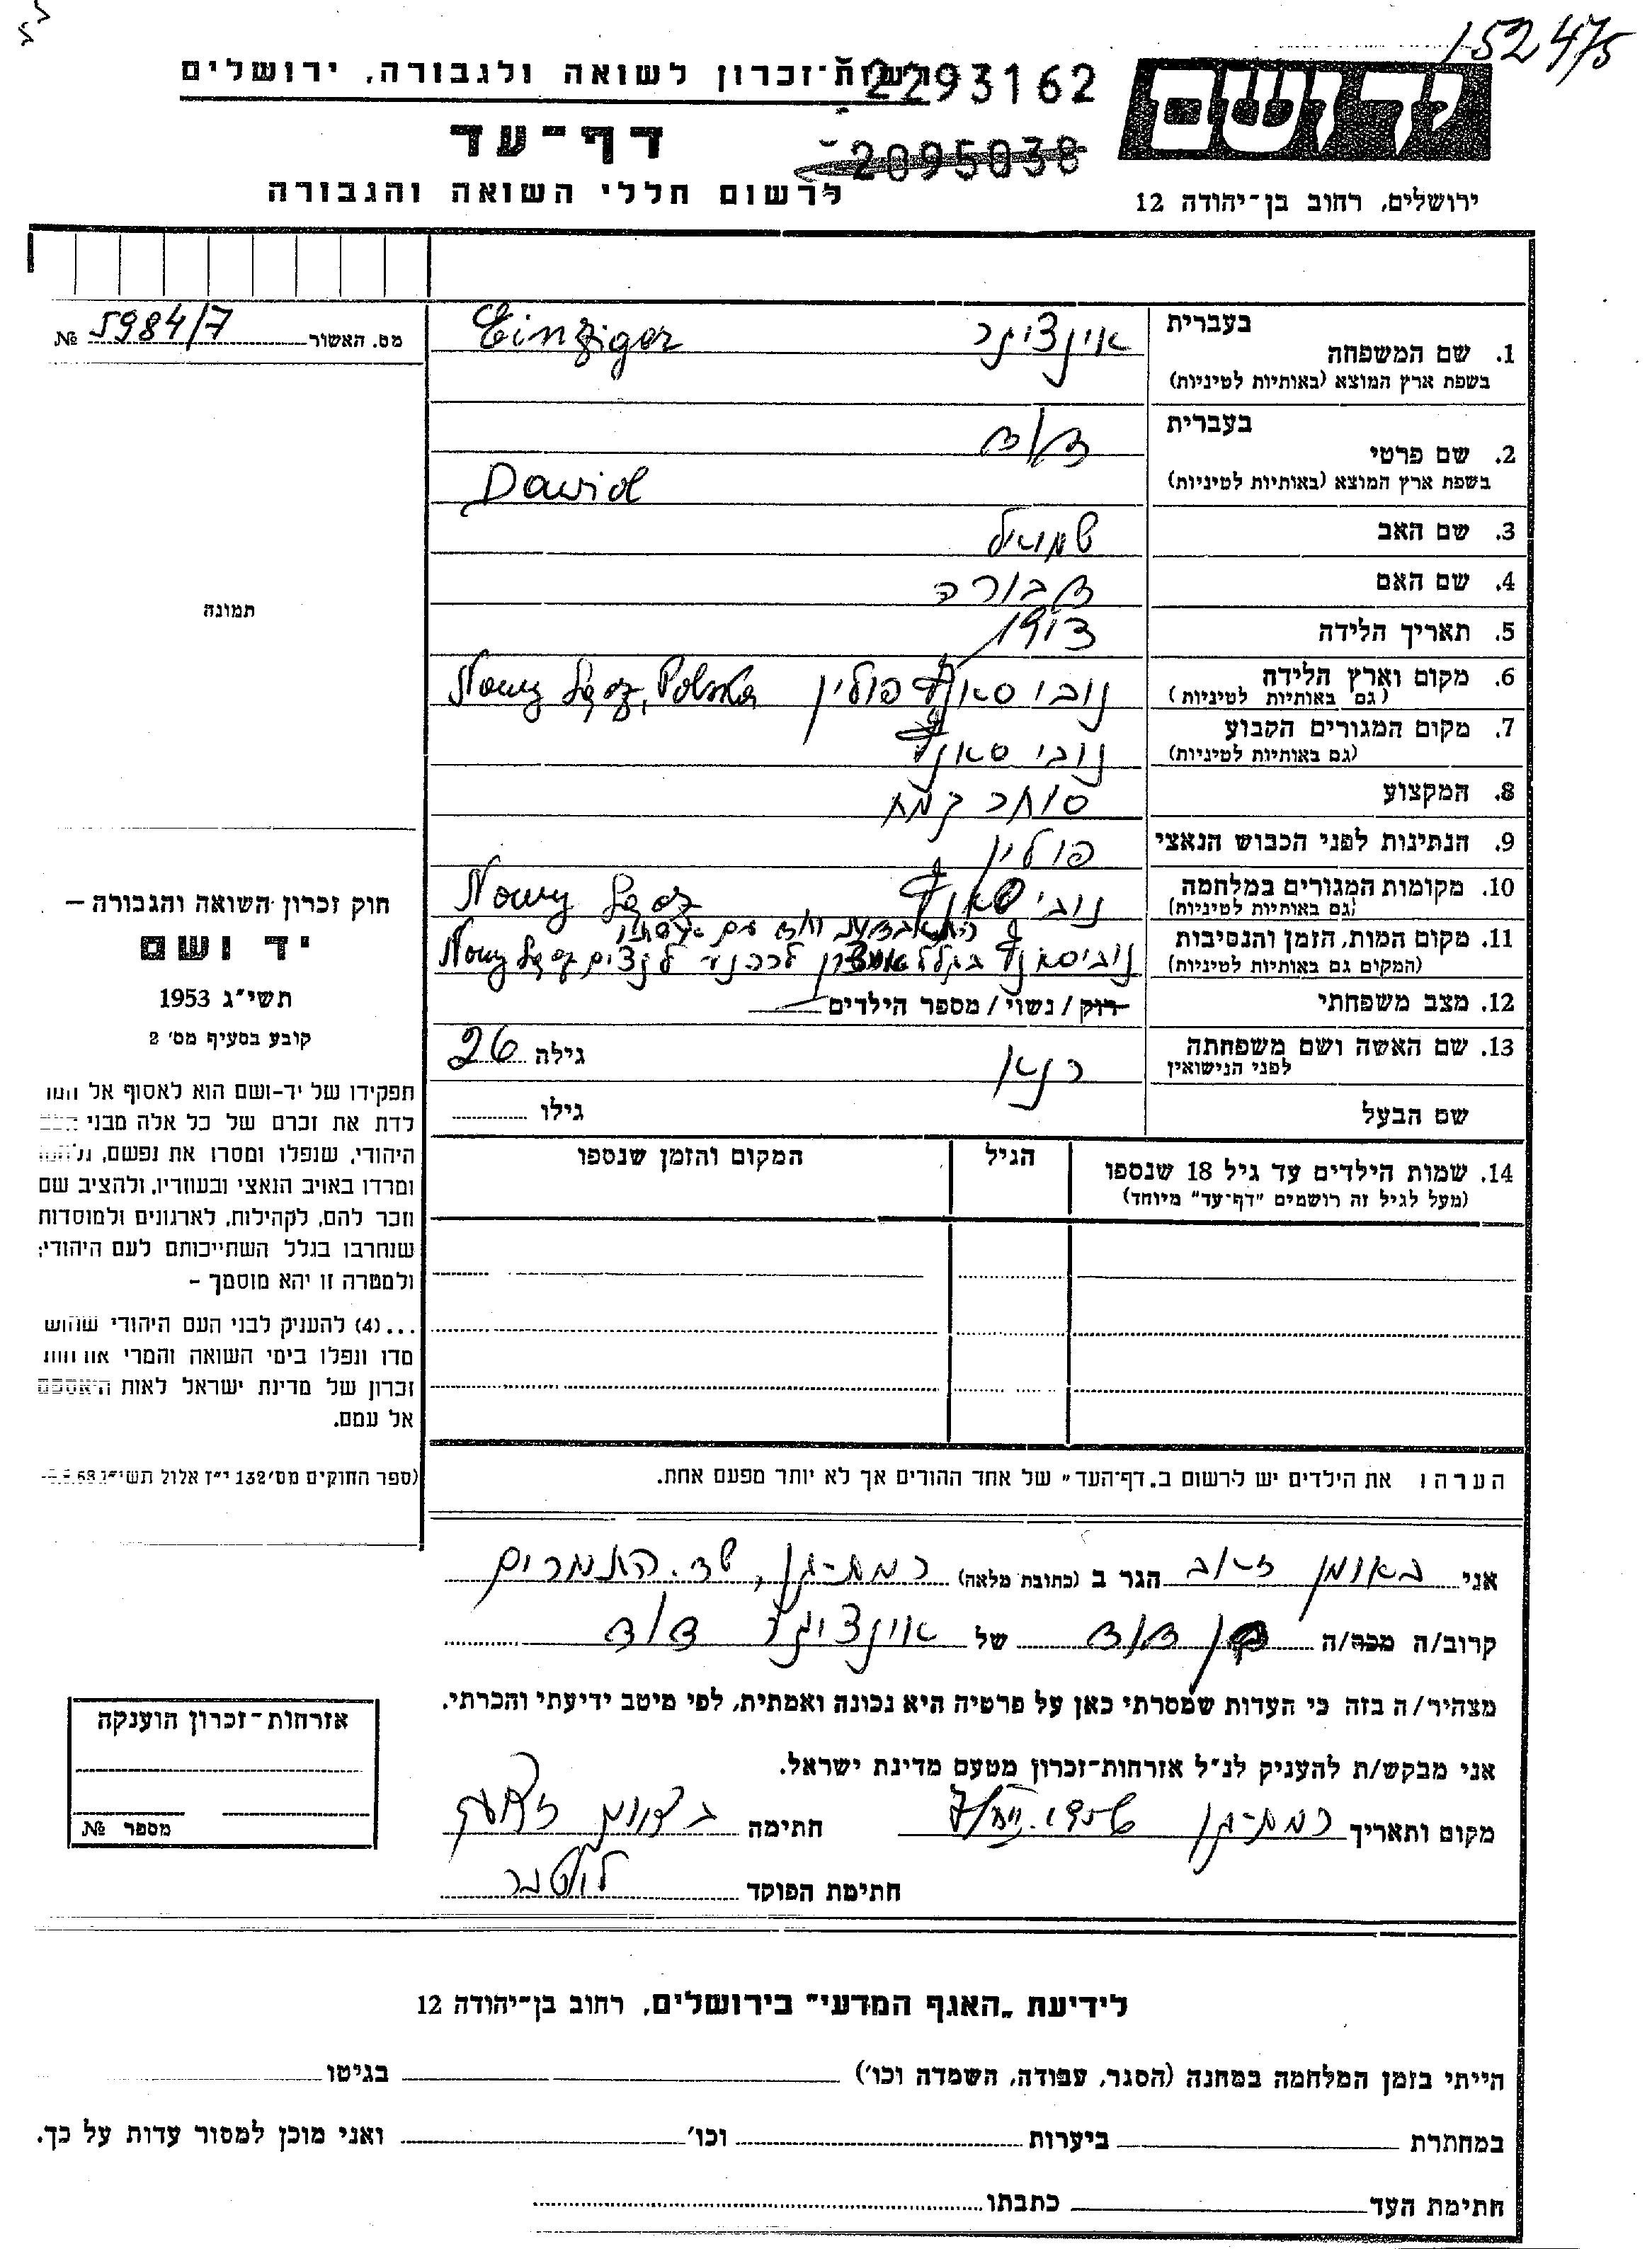 152475
רשות זכרון לשואה ולגבורה, ירושלים
2293162
דף-עד
2095038
לרשום חללי השואה והגבורה
ירושלים, רחוב בן-יהודה 12
מס. האשור 5984/7 №
בעברית
1. שם המשפחה אינציגר Einziger
בשפת ארץ המוצא (באותיות לטיניות)
בעברית
2. שם פרטי דוד
בשפת ארץ המוצא (באותיות לטיניות) Dawid
3. שם האב שמואל
4. שם האם דבורה
5. תאריך הלידה 1913
6. מקום וארץ הלידה נובי סאנץ פולין Nowy Sącz, Polska
(גם באותיות לטיניות)
7. מקום המגורים הקבוע נובי סאנץ
(גם באותיות לטיניות)
8. המקצוע סוחר קמח
9. הנתינות לפני הכבוש הנאצי פולין
10. מקומות המגורים במלחמה נובי סאנץ Nowy Sącz
(גם באותיות לטיניות)
התאבדות יחד עם אשתו
11. מקום המות, הזמן והנסיבות נובי סאנץ בגלל לרכנע לנצים Nowy Sącz
(המקום גם באותיות לטיניות)
12. מצב משפחתי רוק / נשוי / מספר הילדים
13. שם האשה ושם משפחתה גילה 26
לפני הנישואין
שם הבעל גילו
14. שמות הילדים עד גיל 18 שנספו הגיל המקום והזמן שנספו
(מעל לגיל זה רושמים "דף-עד" מיוחד)
תמונה
חוק זכרון השואה והגבורה –
יד ושם
תשי"ג 1953
קובע בסעיף מס' 2
תפקידו של יד-ושם הוא לאסוף אל המו
לדת את זכרם של כל אלה מבני העם
היהודי, שנפלו ומסרו את נפשם, נלחמו
ומרדו באויב הנאצי ובעוזריו, ולהציב שם
וזכר להם, לקהילות, לארגונים ולמוסדות
שנחרבו בגלל השתייכותם לעם היהודי;
ולמטרה זו יהא מוסמך –
...(4) להעניק לבני העם היהודי שהוש
מדו ונפלו בימי השואה והמרי אזרחות
זכרון של מדינת ישראל לאות היאספם
אל עמם.
(ספר החוקים מס' 132 י"ז אלול תשי"ג
הערה: את הילדים יש לרשום ב„דף-העד" של אחד ההורים אך לא יותר מפעם אחת.
אני באומן זאב הגר ב (כתובת מלאה) רמת-גן, שד. התמרים
קרוב/ה מכר/ה בן דוד של אינציגר דוד
מצהיר/ה בזה כי העדות שמסרתי כאן על פרטיה היא נכונה ואמתית, לפי מיטב ידיעתי והכרתי.
אני מבקש/ת להעניק לנ"ל אזרחות-זכרון מטעם מדינת ישראל.
מקום ותאריך רמת-גן חתימה
חתימת הפוקד
אזרחות-זכרון הוענקה
מספר №
לידיעת „האגף המדעי" בירושלים, רחוב בן-יהודה 12
הייתי בזמן המלחמה במחנה (הסגר, עבודה, השמדה וכו') בגיטו
במחתרת ביערות וכו' ואני מוכן למסור עדות על כך.
חתימת העד כתבתו